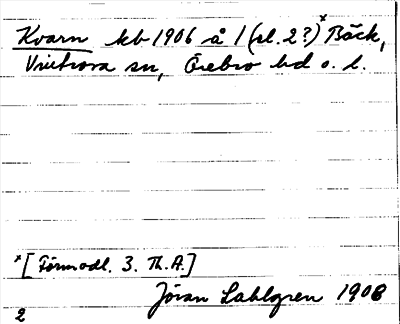 Kvarn kb 1906 å 1 (el. 2?)x Bäck,
Vintrosa sn, Örebro hd o. l.
x[Förmodl. 3. Th.A.]
Jöran Sahlgren 1908
2